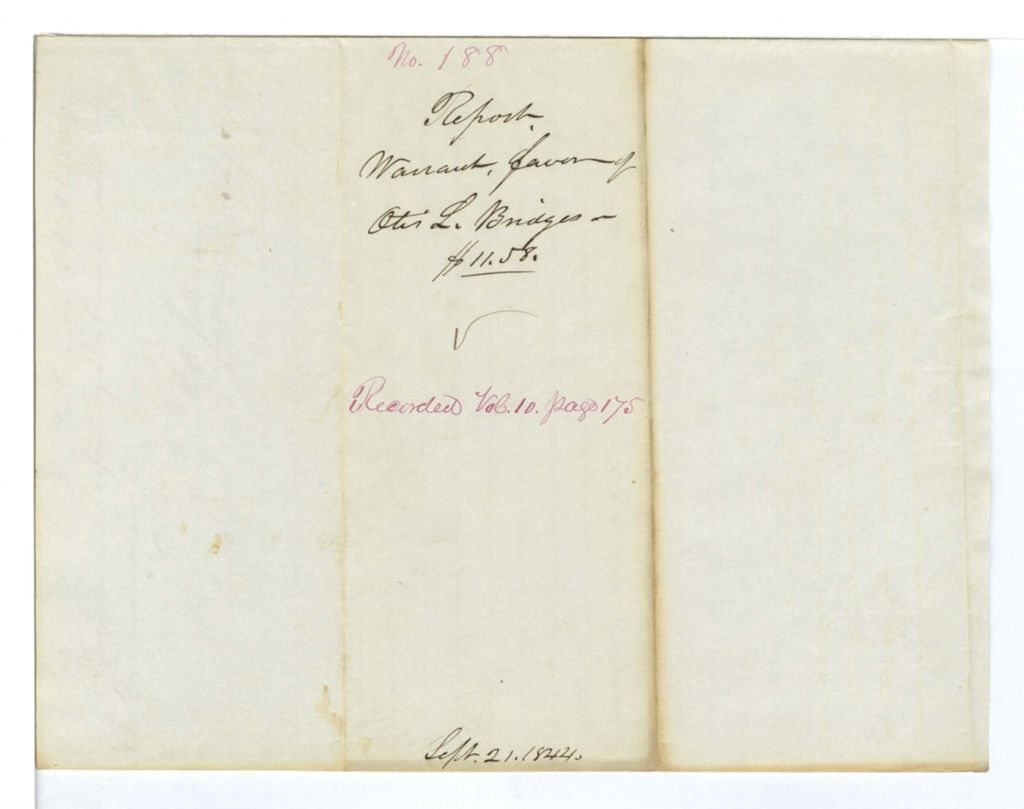 No. 188
Report.
Warrant, favor of
Otis L. Bridges –
$11.58.
Recorded Vol. 10. page 175
Sept. 21. 1844.